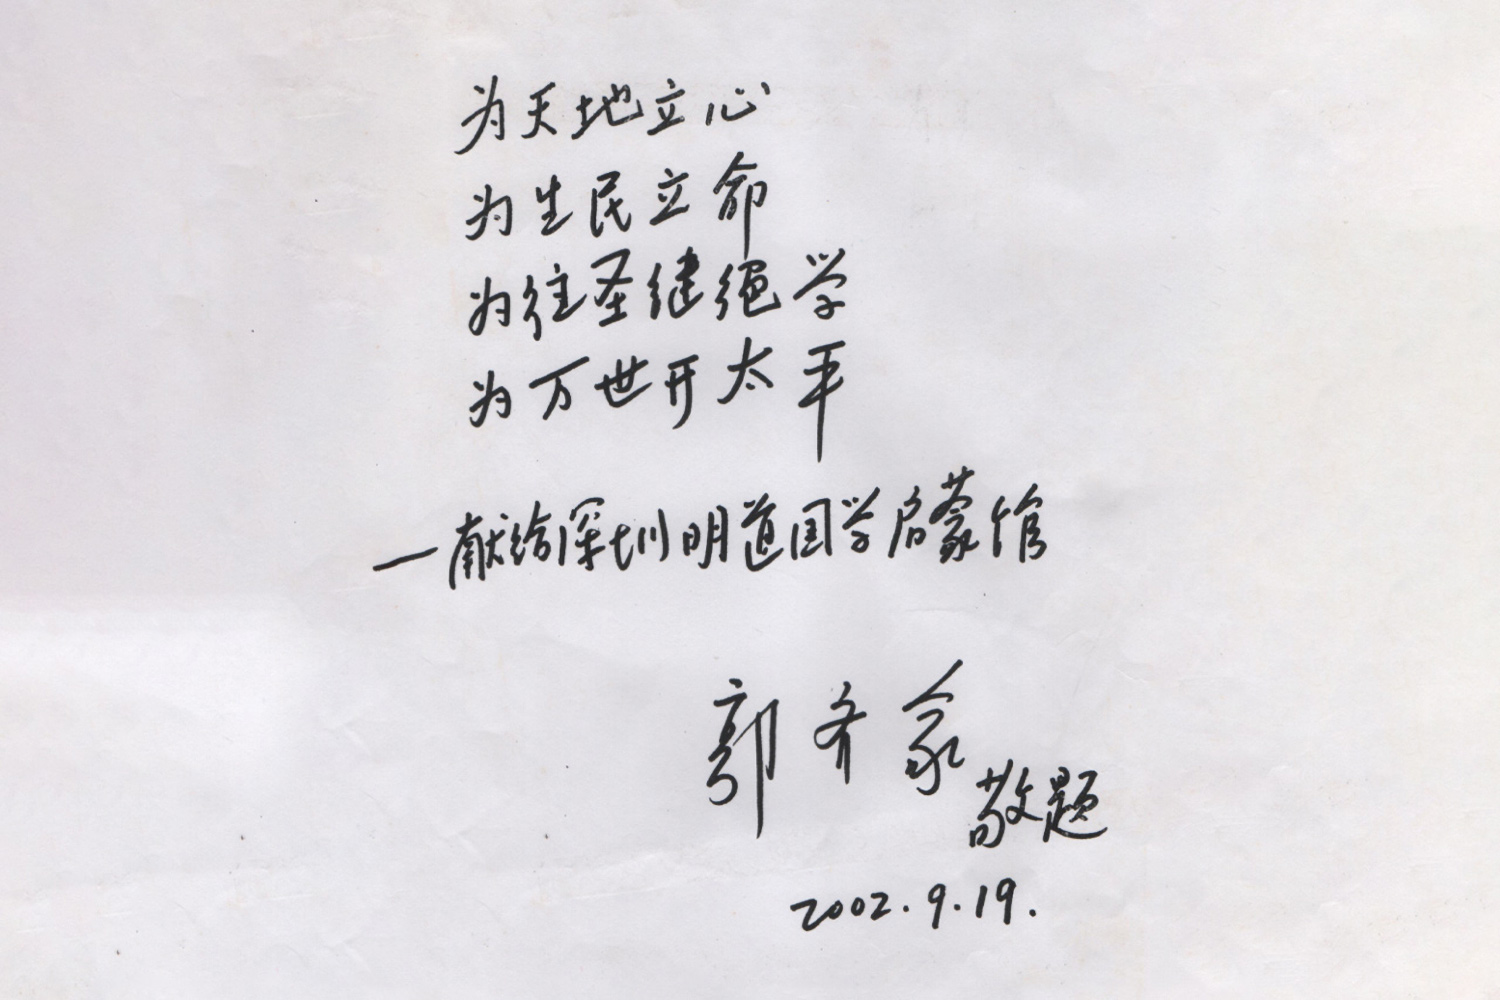 为天地立心
为生民立命
为往圣继绝学
为万世开太平
—献给深圳明道国学启蒙馆
郭齐家
敬题
2002.9.19.